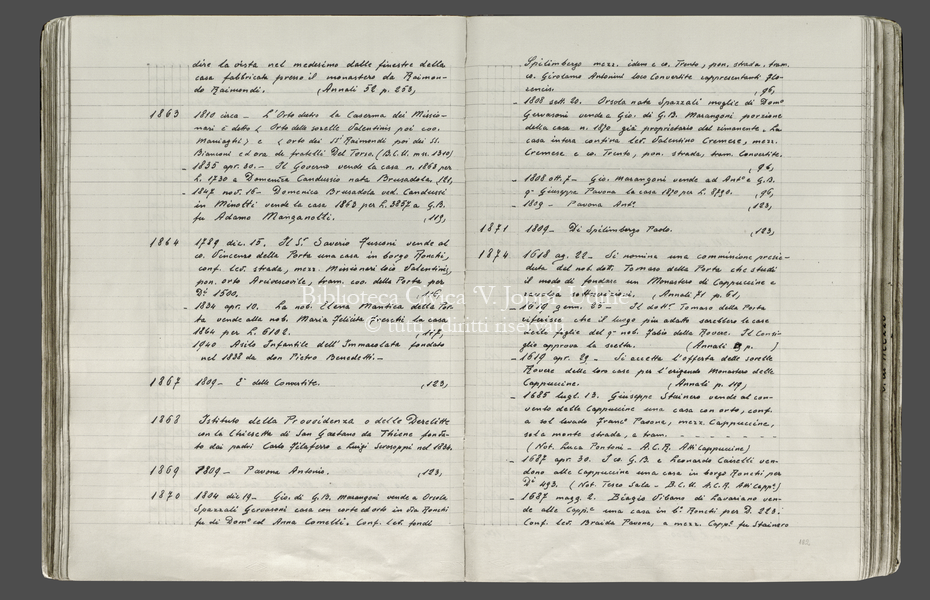 dire la vista nel medesimo dalle finestre della
casa fabbricata presso il monastero da Raimon-
do Raimondi. (Annali 52 p. 253,
1863 1810 circa - L'Orto dietro la Caserma dei Missio-
nari è detto (Orto delle sorelle Valentinis poi co:
Maniaghi) e (orto dei SS.ri Raimondi poi dei SS.
Bianconi ed ora de fratelli Del Torso. (B.C.U. ms. 1310)
- 1835 apr. 30.- Il Governo vende la casa n. 1863 per
L. 1730 a Domenica Candussio nata Brusadola. ,121,
- 1847 nov. 16 - Domenica Brusadola ved. Candussi
in Minotti vende la casa 1863 per L. 3857 a G.B.
fu Adamo Manganotti. ,119,
1864 1789 dic. 15. Il S.r Saverio Fusconi vende al
co. Vincenzo della Porta una casa in borgo Ronchi,
conf. lev. strada, mezz. Missionari loco Valentinis,
pon. orto Arcivescovile, tram. co. della Porta per
D.ti 1500.
- 1834 apr. 10. La nob. Elena Mantica della Por-
ta vende alla nob. Maria Felicita Freschi la casa
1864 per L. 6102. ,117,
1940 Asilo Infantile dell'Immacolata fondato
nel 1838 da don Pietro Benedetti.-
1867 1809 - E' delle Convertite. ,123,
1868 Istituto della Provvidenza o delle Derelitte
con la Chiesetta di San Gaetano da Thiene fonda-
to dai padri Carlo Filaferro e Luigi Scrosoppi nel 1836.
1869 1809 - Pavona Antonio. ,123,
1870 1804 dic. 19 - Gio. di G.B. Marangoni vende a Orsola
Spazzali Gervasoni casa con corte ed orto in Via Ronchi
fu di Dom.o ed Anna Comelli. Conf. lev. fondi
Spilimbergo mezz. idem e co. Trento, pon. strada, tram.
co. Girolamo Antonini loco Convertite rappresentanti Flo-
renzis. ,96,
- 1808 sett. 20. Orsola nata Spazzali moglie di Dom.o
Gervasoni vende a Gio. di G.B. Marangoni porzione
della casa n. 1870 già proprietario del rimanente. La
casa intera confina lev. Valentino Cremese, mezz.
Cremese e co. Trento, pon. strada, tram. Convertite.
,96,
- 1808 ott. 7 - Gio. Marangoni vende ad Ant.o e G.B.
q.m Giuseppe Pavona la casa 1870 per L. 8790. ,96,
- 1809 - Pavona Ant.o ,123,
1871 1809 - Di Spilimbergo Paolo. ,123,
1874 1618 ag. 22 - Si nomina una commissione presie-
duta del nob. dott. Tomaso della Porta che studi
il modo di fondare un Monastero di Cappuccine e
(Annali 71 p. 61,
- 1619 genn. 23 - Il dott.r Tomaso della Porta
riferisce che il luogo più adatto sarebbero le case
delle figlie del q.m nob. Fabio della Rovere. Il Consi-
glio approva la scelta. (Annali p. )
- 1619 apr. 29 - Si accetta l'offerta delle sorelle
Rovere delle loro case per l'erigendo Monastero delle
Cappuccine. (Annali p. 119)
- 1685 lugl. 13. Giuseppe Stainero vende al con-
vento delle Cappuccine una casa con orto, conf.
a sol levado Franc.o Pavone, mezz. Cappuccine,
sol a monte strada, e tram. - - - - - -
(Not. Luca Pontoni - A.C.R. Atti Cappuccine)
- 1687 apr. 30. I co. G.B. e Leonardo Caiselli ven-
dono alle Cappuccine una casa in borgo Ronchi per
D.ti 493. (Not. Tesco Sala - B.C.U. A.C.R. Atti Capp.e)
- 1687 magg. 2. Biagio Urbano di Lavariano ven-
de alle Capp.e una casa in b.o Ronchi per D. 223.
Conf. lev. Braida Pavona, a mezz. Capp.e fu Stainero
182
Biblioteca Civica V. Joppi Udine
© tutti i diritti riservati